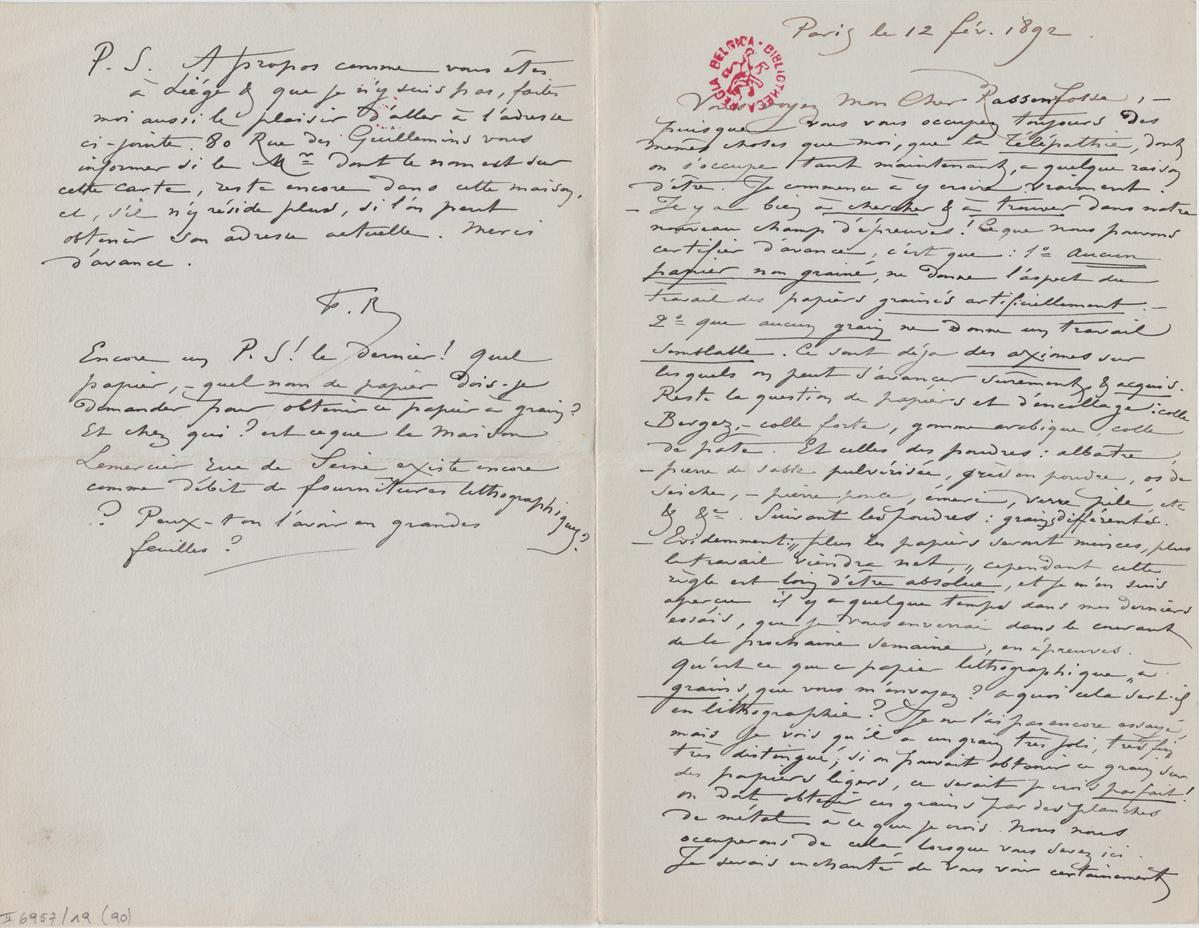 P. S. A propos comme vous êtes
à Liége & que je n'y suis pas, faites
moi aussi le plaisir d'aller à l'adresse
ci-jointe. 80 Rue des Guillemins vous
informer si le Mr dont le nom est sur
cette carte, reste encore dans cette maison,
et, s'il n'y réside plus, si l'on peut
obtenir son adresse actuelle. Merci
d'avance.
F. R
Encore un P. S! le dernier! Quel
papier, – quel nom de papier dois-je
demander pour obtenir ce papier à grain?
Et chez qui? est ce que la Maison
Lemercier rue de Seine existe encore
comme débit de fournitures lithographiques?
? Peux-t on l'avoir en grandes
feuilles?
II 6957/19 (90)
Paris le 12 fév. 1892.
BIBLIOTHECA REGIA BELGICA
Vous voyez Mon Cher Rassenfosse, –
puisque vous vous occupez toujours des
mêmes choses que moi, que la Télépathie, dont
on s'occupe tant maintenant, a quelque raison
d'être. Je commence à y croire vraiment.
– Il y a bien à chercher & à trouver dans notre
nouveau champ d'épreuves! Ce que nous pouvons
certifier d'avance, c'est que: 1º Aucun
papier non grainé, ne donne l'aspect du
travail des papiers grainés artificiellement. –
2º que aucun grain ne donne un travail
semblable. Ce sont déja des axiomes sur
lesquels on peut s'avancer surement, & acquis.
Reste la question de papiers et d'encollage: colle
Bergez, – colle forte, gomme arabique, colle
de pate. Et celles des poudres: albatre,
– pierre de sable pulvérisée, grès en poudre, os de
seiche, – pierre ponce, émeri, verre pilé, etc
& &a. Suivant les poudres: grains différents.
– Evidemment: „plus les papiers seront minces, plus
le travail viendra net,„ cependant cette
règle est loin d'être absolue, et je m'en suis
aperçu il y a quelque temps dans mes derniers
essais, que je vous enverrai dans le courant
de la prochaine semaine, en épreuves.
Qu'est ce que ce papier lithographique „à
grains, que vous m'envoyez? a quoi cela sert-il
en lithographie? Je ne l'ai pas encore essayé
mais je vois qu'il a un grain très joli, très fin
très distingué; si on pouvait obtenir ce grain sur
des papiers légers, ce serait je crois parfait!
on doit obtenir ces grains par des planches
de métal à ce que je crois. Nous nous
occuperons de cela lorsque vous serez ici.
Je serais enchanté de vous voir certainement